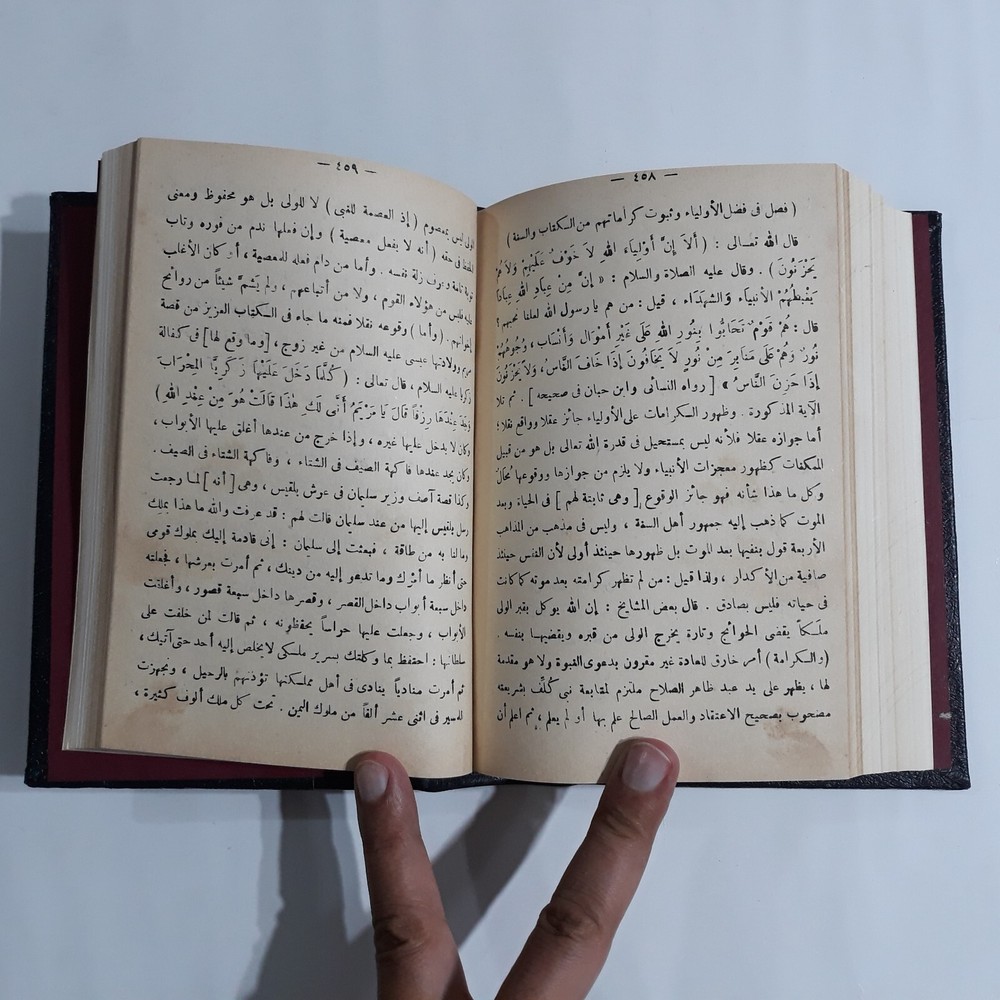 — ٤٥٨ —
( فصل فى فضل الأولياء وثبوت كراماتهم من الكتاب والسنة )
قال الله تعالى : ( أَلاَ إِنَّ أَوْلِيَاءَ اللهِ لاَ خَوْفٌ عَلَيْهِمْ وَلاَ هُمْ
يَحْزَنُونَ ) . وقال عليه الصلاة والسلام : « إِنَّ مِنْ عِبَادِ اللهِ عِبَاداً
يَغْبِطُهُمُ الأَنبياءُ وَالشُّهَدَاء ، قيل : من هم يا رسول الله لعلنا نحبهم ؟
قال : هُمْ قَوْمٌ تَحَابُّوا بِنُورِ اللهِ عَلَى غَيْرِ أَمْوَالٍ وَأَنْسَابٍ ، وُجُوهُهُمْ
نُورٌ وَهُمْ عَلَى مَنَابِرَ مِنْ نُورٍ لاَ يَخَافُونَ إِذَا خَافَ النَّاسُ ، وَلاَ يَحْزَنُونَ
إِذَا حَزِنَ النَّاسُ » [ رواه النسائى وابن حبان فى صحيحه ] . ثم تلا
الآية المذكورة . وظهور الكرامات على الأولياء جائز عقلا وواقع نقلا ؛
أما جوازه عقلا فلأنه ليس بمستحيل فى قدرة الله تعالى بل هو من قبيل
الممكنات كظهور معجزات الأنبياء ولا يلزم من جوازها ووقوعها محال
وكل ما هذا شأنه فهو جائز الوقوع [ وهى ثابتة لهم ] فى الحياة وبعد
الموت كما ذهب إليه جمهور أهل السنة ، وليس فى مذهب من المذاهب
الأربعة قول بنفيها بعد الموت بل ظهورها حينئذ أولى لأن النفس حينئذ
صافية من الأكدار ، ولذا قيل : من لم تظهر كرامته بعد موته كما كانت
فى حياته فليس بصادق . قال بعض المشايخ : إن الله يوكل بقبر الولى
ملَـكاً يقضى الحوائج وتارة يخرج الولى من قبره ويقضيها بنفسه .
( والكرامة ) أمر خارق للعادة غير مقرون بدعوى النبوة ولا هو مقدمة
لها ، يظهر على يد عبد ظاهر الصلاح ملتزم لمتابعة نبى كُلِّف بشريعته
مصحوب بصحيح الاعتقاد والعمل الصالح علم بها أو لم يعلم ، ثم اعلم أن
— ٤٥٩ —
الولى ليس بمعصوم ( إذ العصمة للنبى ) لا للولى بل هو محفوظ ومعنى
الحفظ فى حقه ( أنه لا يفعل معصية ) وإن فعلها ندم من فوره وتاب
توبة تامة وعرف زلة نفسه . وأما من دام فعله للمعصية ، أو كان الأغلب
عليه فليس من هؤلاء القوم ، ولا من أتباعهم ، ولم يَشُمَّ شيئاً من روائح
أحوالهم . ( وأما ) وقوعه نقلا فمنه ما جاء فى الكتاب العزيز من قصة
مريم وولادتها عيسى عليه السلام من غير زوج ، [ وما وقع لها ] فى كفالة
زكريا عليه السلام ، قال تعالى : ( كُلَّمَا دَخَلَ عَلَيْهَا زَكَرِيَّا المِحْرَابَ
وَجَدَ عِنْدَهَا رِزْقاً قَالَ يَا مَرْيَمُ أَنَّى لَكِ هٰذَا قَالَتْ هُوَ مِنْ عِنْدِ اللهِ )
وكان لا يدخل عليها غيره ، وإذا خرج من عندها أغلق عليها الأبواب ،
وكان يجد عندها فاكهة الصيف فى الشتاء ، وفاكهة الشتاء فى الصيف .
وكذا قصة آصف وزير سليمان فى عرش بلقيس ، وهى [ أنه ] لما رجعت
رسل بلقيس إليها من عند سليمان قالت لهم : قد عرفت والله ما هذا بملك
وما لنا به من طاقة ، فبعثت إلى سليمان : إنى قادمة إليك بملوك قومى
حتى أنظر ما أمرك وما تدعو إليه من دينك ، ثم أمرت بعرشها ، فجعلته
داخل سبعة أبواب داخل القصر ، وقصرها داخل سبعة قصور ، وأغلقت
الأبواب ، وجعلت عليها حراساً يحفظونه ، ثم قالت لمن خلفت على
سلطانها : احتفظ بما وكلتك بسرير ملكى لا يخلص إليه أحد حتى آتيك ،
ثم أمرت منادياً ينادى فى أهل مملكتها تؤذنهم بالرحيل ، وتجهزت
للمسير فى اثنى عشر ألفاً من ملوك اليمن . تحت كل ملك ألوف كثيرة ،